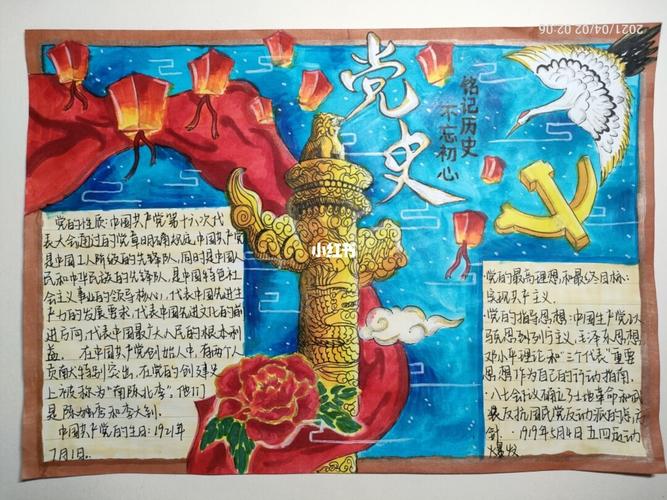 2021/04/02 02:06
党史
铭记历史
不忘初心
小红书
党的性质:中国共产党第十六次代
表大会通过的党章明确规定,中国共产党
是中国工人阶级的先锋队,同时是中国人
民和中华民族的先锋队,是中国特色社
会主义事业的领导核心,代表中国先进生
产力的发展要求,代表中国先进文化的前
进方向,代表中国最广大人民的根本利
益。 在中国共产党创始人中,有两个人
贡献特别突出,在党的创建史
上被称为“南陈北李”,他们
是陈独秀和李大钊。
中国共产党的生日:1921年
7月1日.
党的最高理想和最终目标:
实现共产主义.
·党的指导思想:中国共产党以
马克思列宁主义,毛泽东思想,
邓小平理论和“三个代表”重要
思想作为自己的行动指南.
·八七会议确定了土地革命和武
装反抗国民党反动派的总方
针. ·1919年5月4日五四运动
爆发